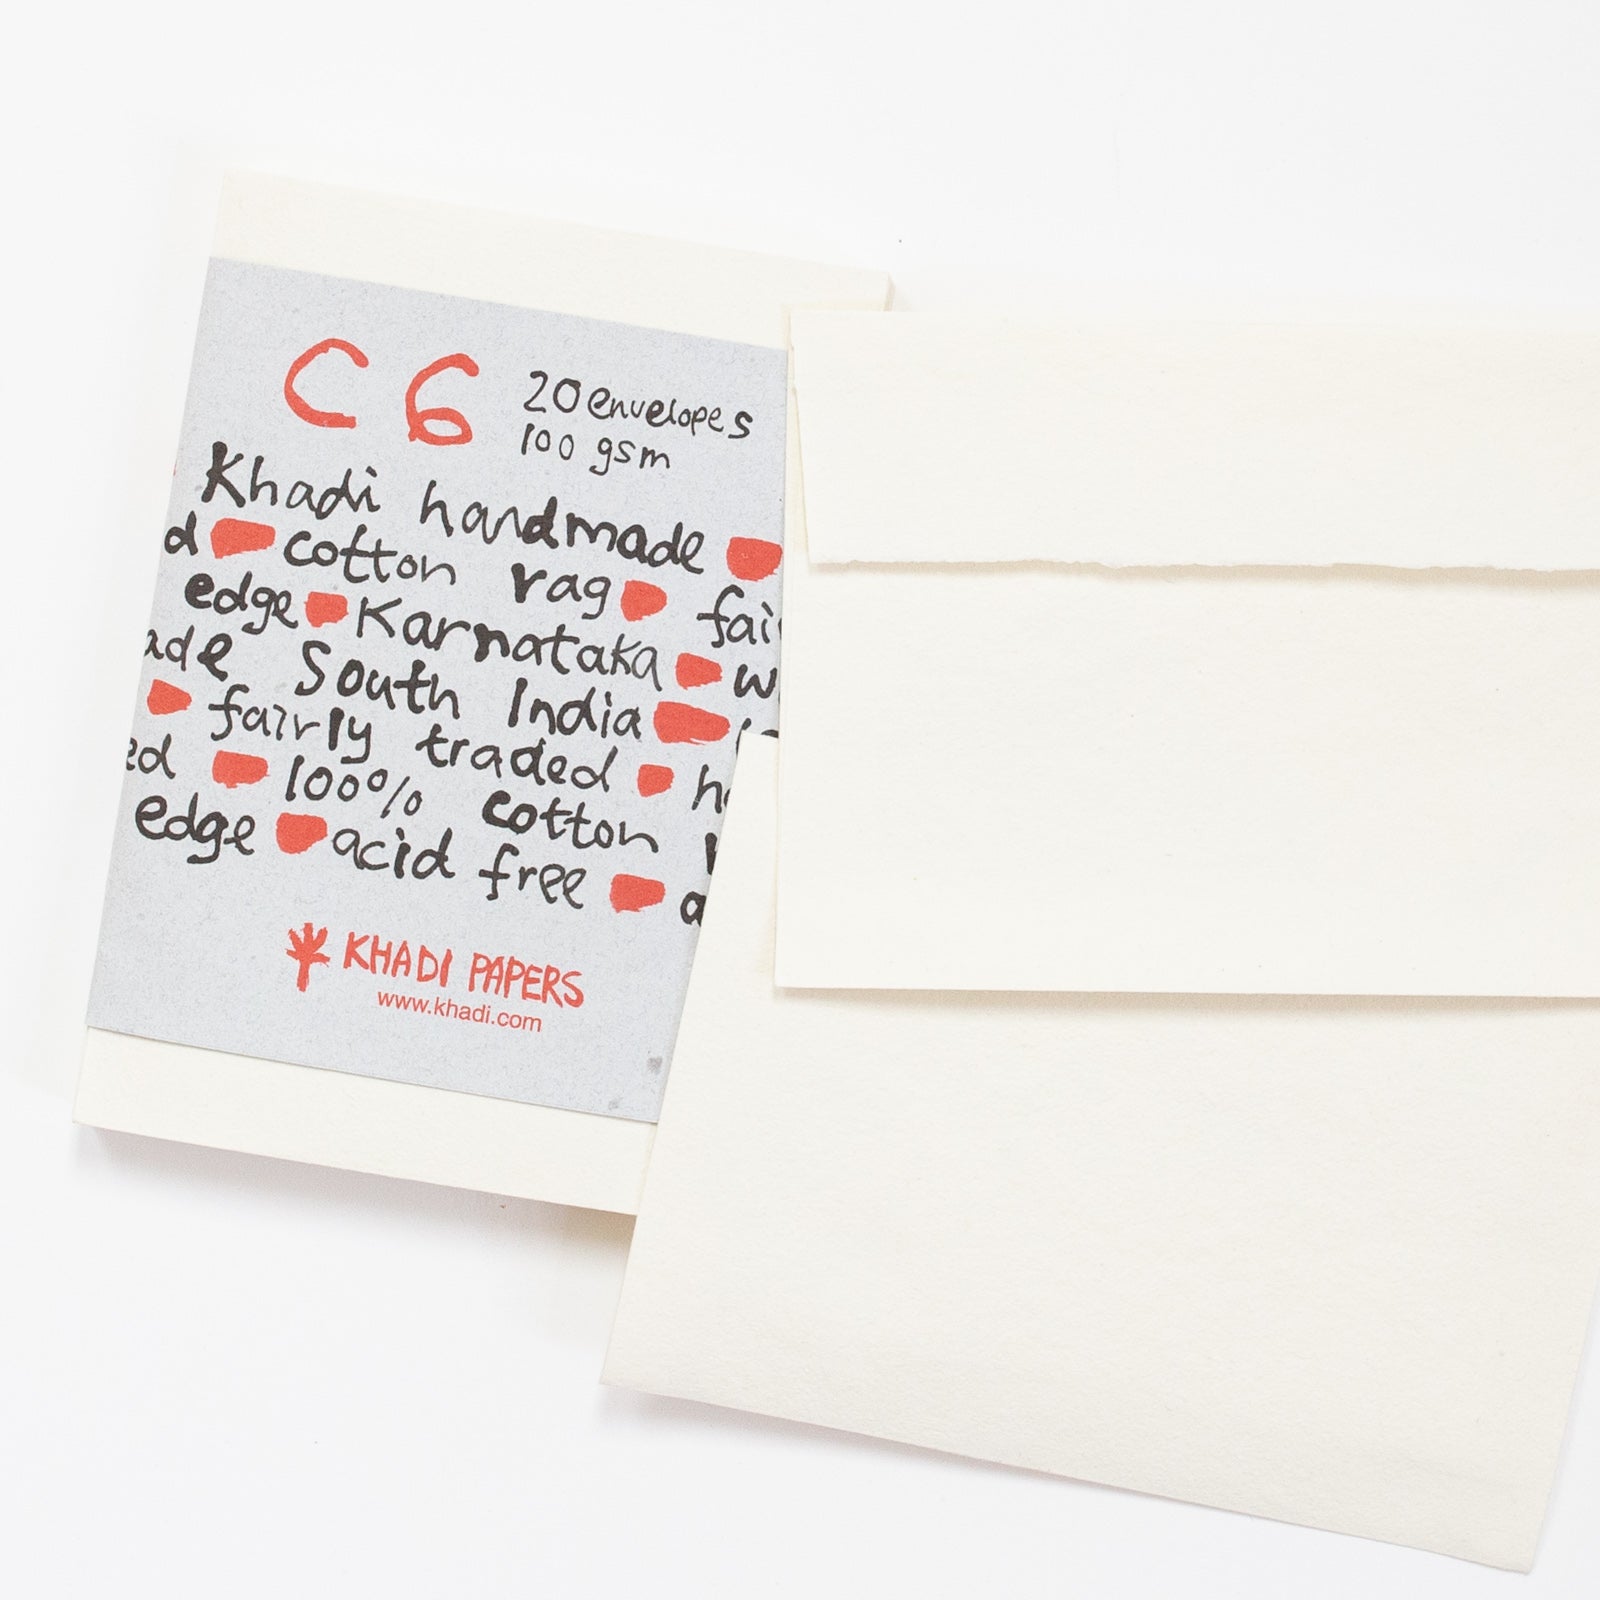 C6
20 envelopes
100 gsm
Khadi handmade
cotton rag
edge Karnataka
South India
fairly traded
100% cotton
edge acid free
KHADI PAPERS
www.khadi.com